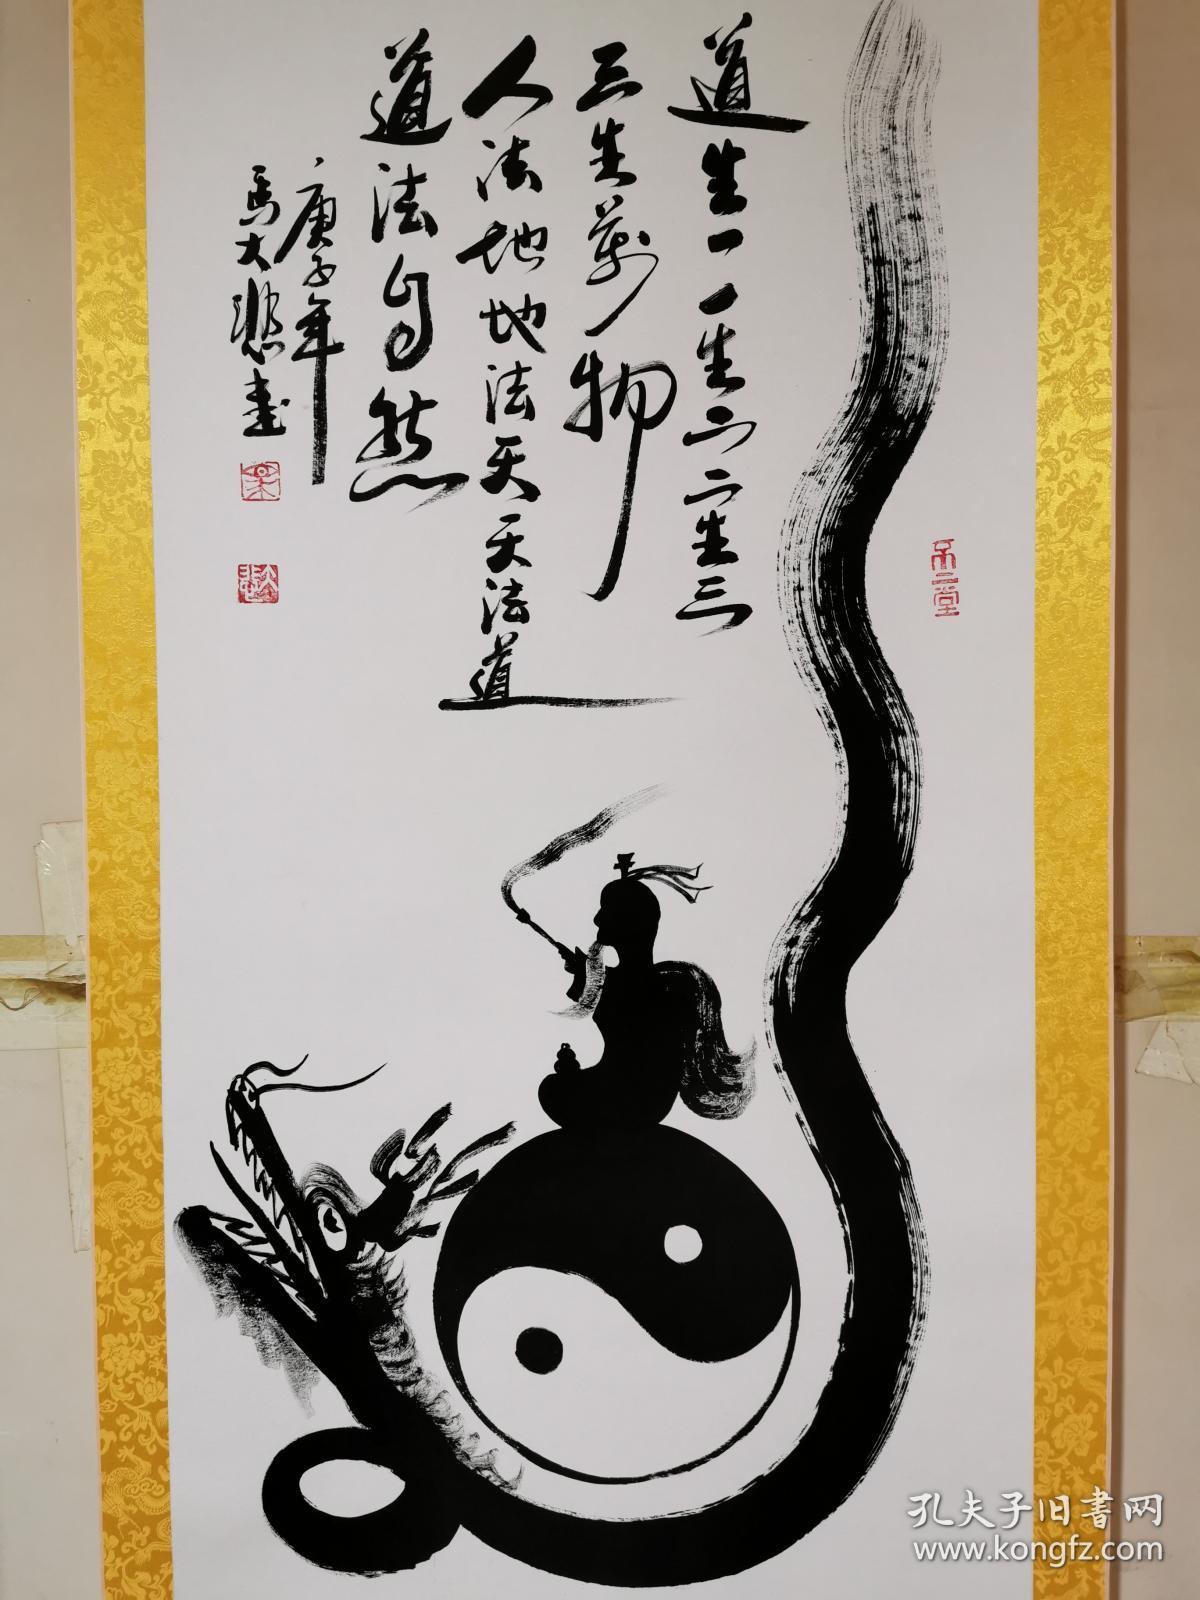 道生一一生二二生三
三生万物
人法地地法天天法道
道法自然
庚子年
馬大悲書
不二堂
孔夫子旧書网
www.kongfz.com